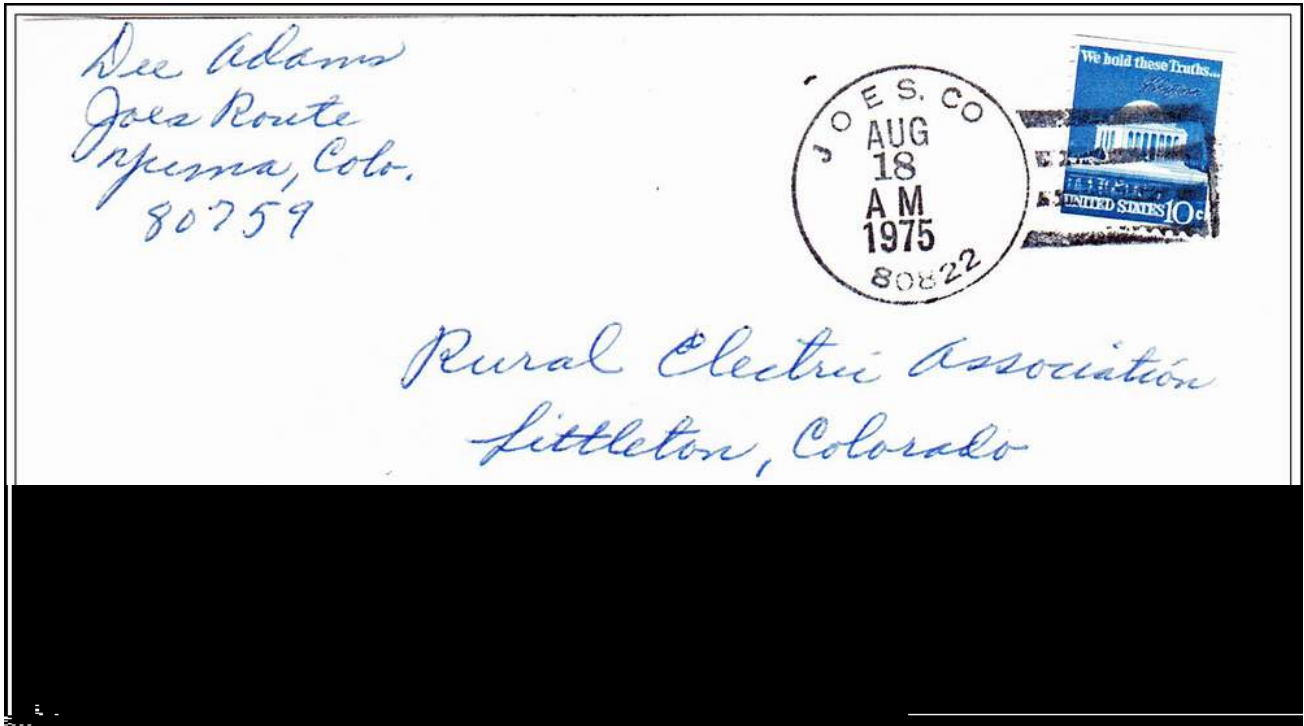 Dee Adams
Joes Route
Yuma, Colo.
80759
JOES. CO
AUG
18
AM
1975
80822
We hold these Truths...
UNITED STATES 10c
Rural Electric Association
Littleton, Colorado